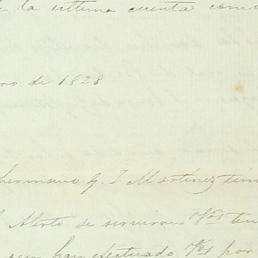 la ultima cuenta
de 1828
hermano Y. I Martinez
Abrto se serviran Vds
han efectuado Vds por